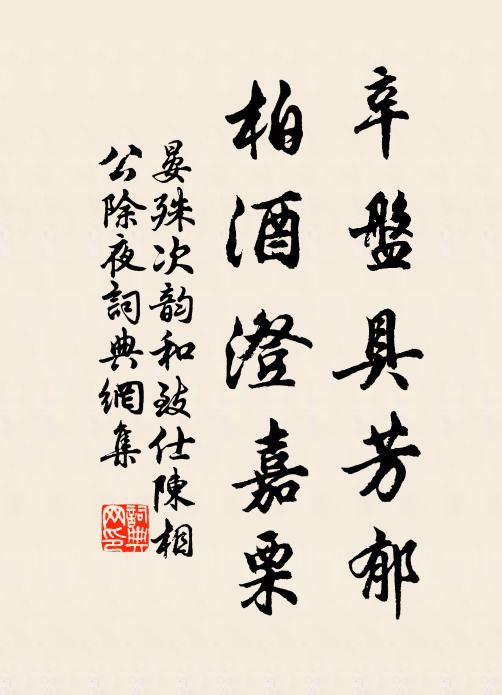 辛盤具芳郁
柏酒澄嘉栗
晏殊次韵和致仕陳相
公除夜詞典網集
詞典
网印